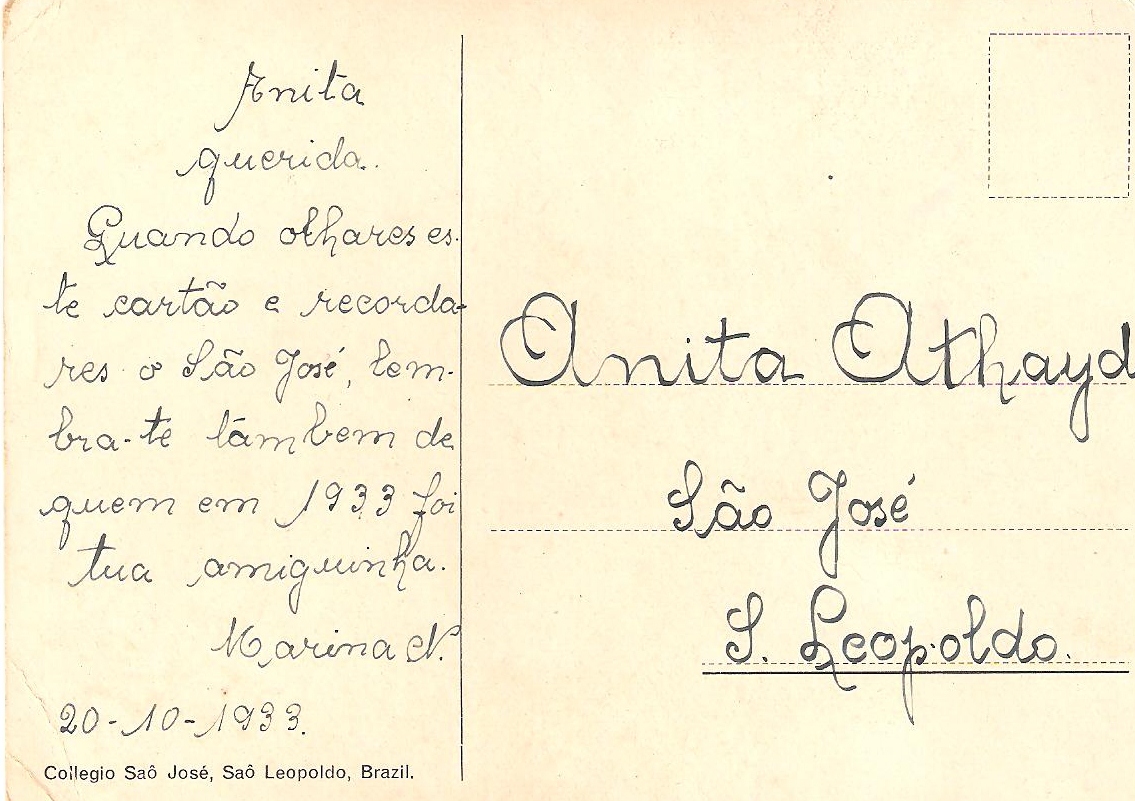 Anita
querida.
Quando olhares es-
te cartão e recorda-
res o São José, lem-
bra-te tâmbem de
quem em 1933 foi
tua amiguinha.
Marina N.
20-10-1933.
Collegio Saô José, Saô Leopoldo, Brazil.
Anita Athayd
São José
S. Leopoldo.